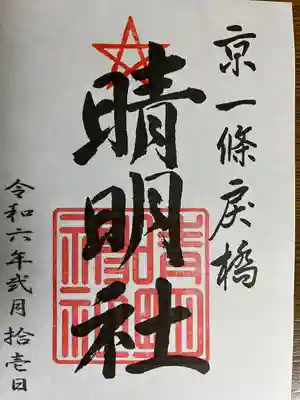 京一條戻橋
晴明社
晴明
神社
令和六年弐月拾壱日